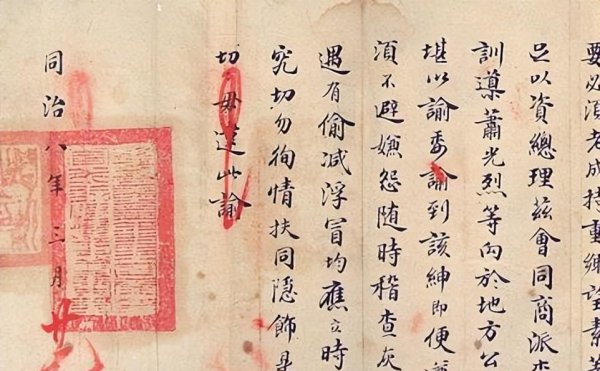 要必須老成持重鄉望素
足以資總理茲會同商派本
訓導蕭光烈等向於地方公
堪以諭委諭到該紳即便
須不避嫌怨随時稽查灰
遇有偷減浮冒均應立時
究切勿徇情扶同隱飾是
切毋違此諭
同治八年三月廿